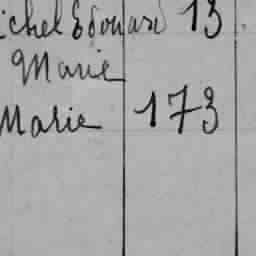 ichel Edouard 13
Marie
Marie 173